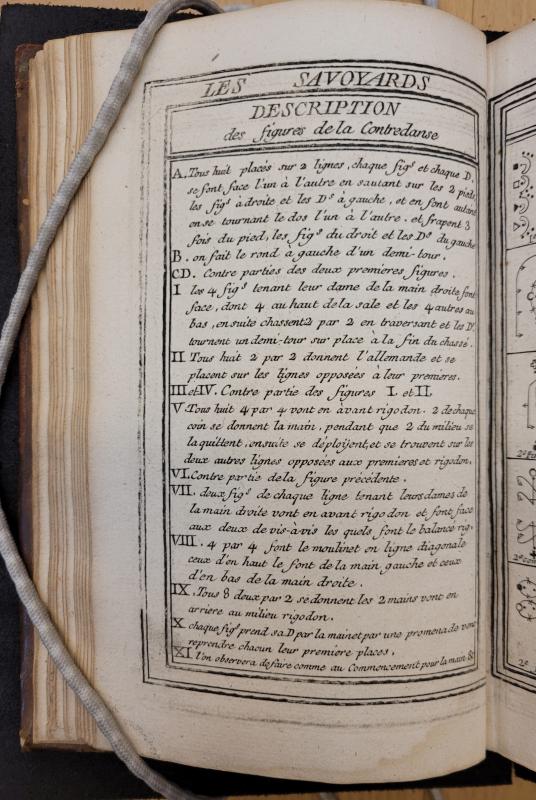 LES SAVOYARDS
DESCRIPTION
des figures de la Contredanse
A. Tous huit placés sur 2 lignes, chaque figs et chaque D.
se font face l'un à l'autre en sautant sur les 2 pieds
les figs à droite et les Ds à gauche, et en font autant
en se tournant le dos l'un à l'autre. et frapent 3
fois du pied, les figs du droit et les Ds du gauche
B. on fait le rond à gauche d'un demi-tour.
CD. Contre parties des deux premieres figures.
I les 4 figs tenant leur dame de la main droite font
face, dont 4 au haut de la sale et les 4 autres au
bas, ensuite chassent 2 par 2 en traversant et les Ds
tournent un demi-tour sur place à la fin du chassé.
II Tous huit 2 par 2 donnent l'allemande et se
placent sur les lignes opposées à leur premieres.
III et IV. Contre partie des figures I. et II.
V. Tous huit 4 par 4 vont en avant rigodon. 2 de chaque
coin se donnent la main, pendant que 2 du milieu se
la quittent, ensuite se déploÿent, et se trouvent sur les
deux autres lignes opposées aux premieres et rigodon.
VI. Contre partie de la figure précédente.
VII. deux figs de chaque ligne tenant leurs dames de
la main droite vont en avant rigodon et font face
aux deux de vis-à-vis les quels font le balance rig.
VIII. 4 par 4 font le moulinet en ligne diagonale
ceux d'en haut le font de la main gauche et ceux
d'en bas de la main droite.
IX. Tous 8 deux par 2 se donnent les 2 mains vont en
arriere au milieu rigodon.
X chaque figs prend sa D par la main et par une promenade vont
reprendre chacun leur premiere places.
XI. l'on observera de faire comme au Commencement pour la main &c
2e
2e
2e